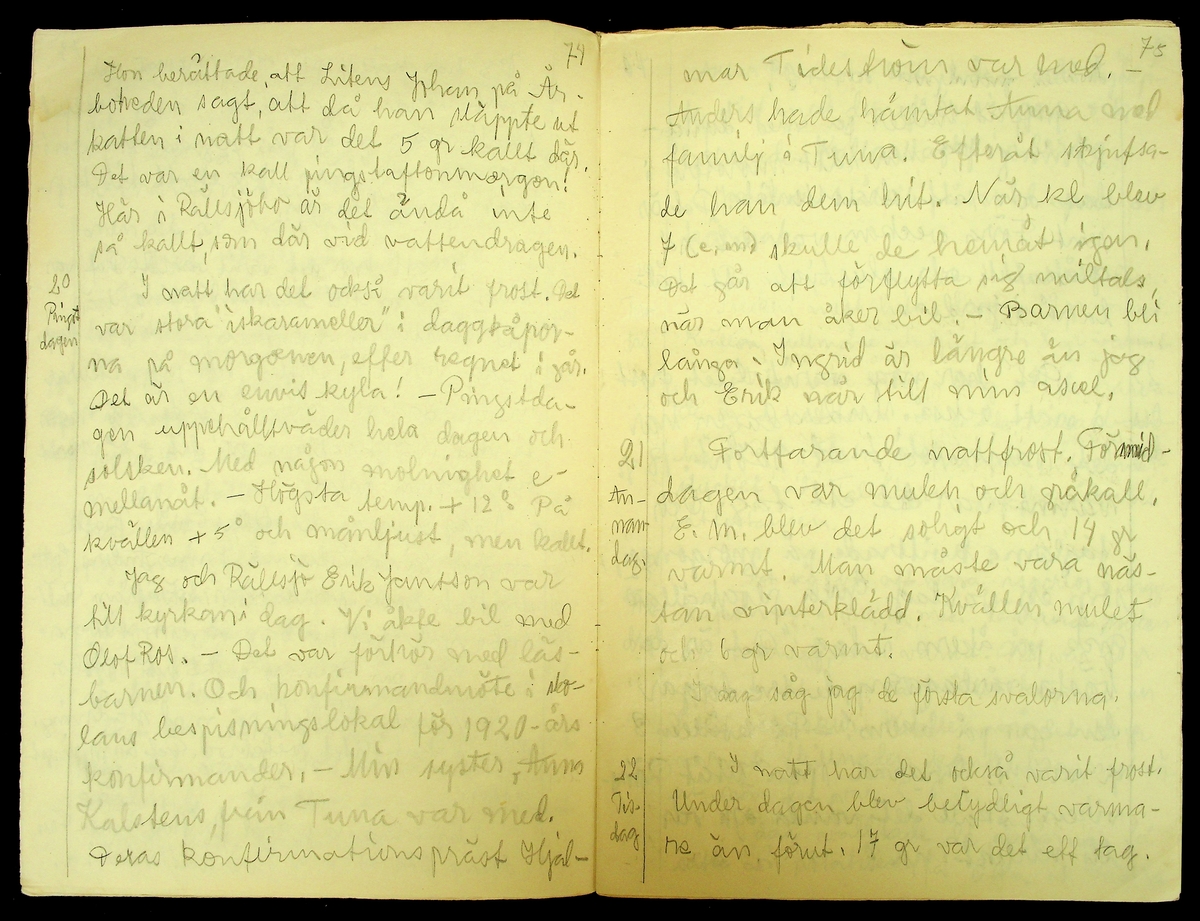 74
Hon berättade, att Litens Johan på År-
boheden sagt, att då han släppte ut
katten i natt var det 5 gr kallt där.
Det var en kall pingstaftonmorgon!
Här i Rällsjöbo är det ändå inte
så kallt, som där vid vattendragen.
20
Pingst
dagen
I natt har det också varit frost. Det
var stora "iskarameller" i daggkåpor-
na på morgonen, efter regnet i går.
Det är en envis kyla! – Pingstda-
gen uppehållsväder hela dagen och
solsken. Med någon molnighet e-
mellanåt. – Högsta temp. + 12°. På
kvällen + 5° och månljust, men kallt.
Jag och Rällsjö Erik Jantson var
till kyrkan i dag. Vi åkte bil med
Olof Ros. – Det var förhör med läs-
barnen. Och konfirmandmöte i sko-
lans bespisningslokal för 1920-års
konfirmander. – Min syster, Anna
Kalstens, från Tuna var med.
Deras konfirmationspräst Hjal-
75
mar Tideström var med. –
Anders hade hämtat Anna med
familj i Tuna. Efteråt skjutsa-
de han dem hit. När kl blev
7 (e.m) skulle de hemåt igen.
Det går att förflytta sig miltals,
när man åker bil. – Barnen bli
långa. Ingrid är längre än jag
och Erik når till min axel.
21
An-
nan
dag.
Fortfarande nattfrost. Förmid-
dagen var mulen och råkall.
E. M. blev det soligt och 14 gr
varmt. Man måste vara näs-
tan vinterklädd. Kvällen mulet
och 6 gr varmt.
I dag såg jag de första svalorna.
22
Tis-
dag
I natt har det också varit frost.
Under dagen blev betydligt varma-
re än förut. 17 gr var det ett tag.